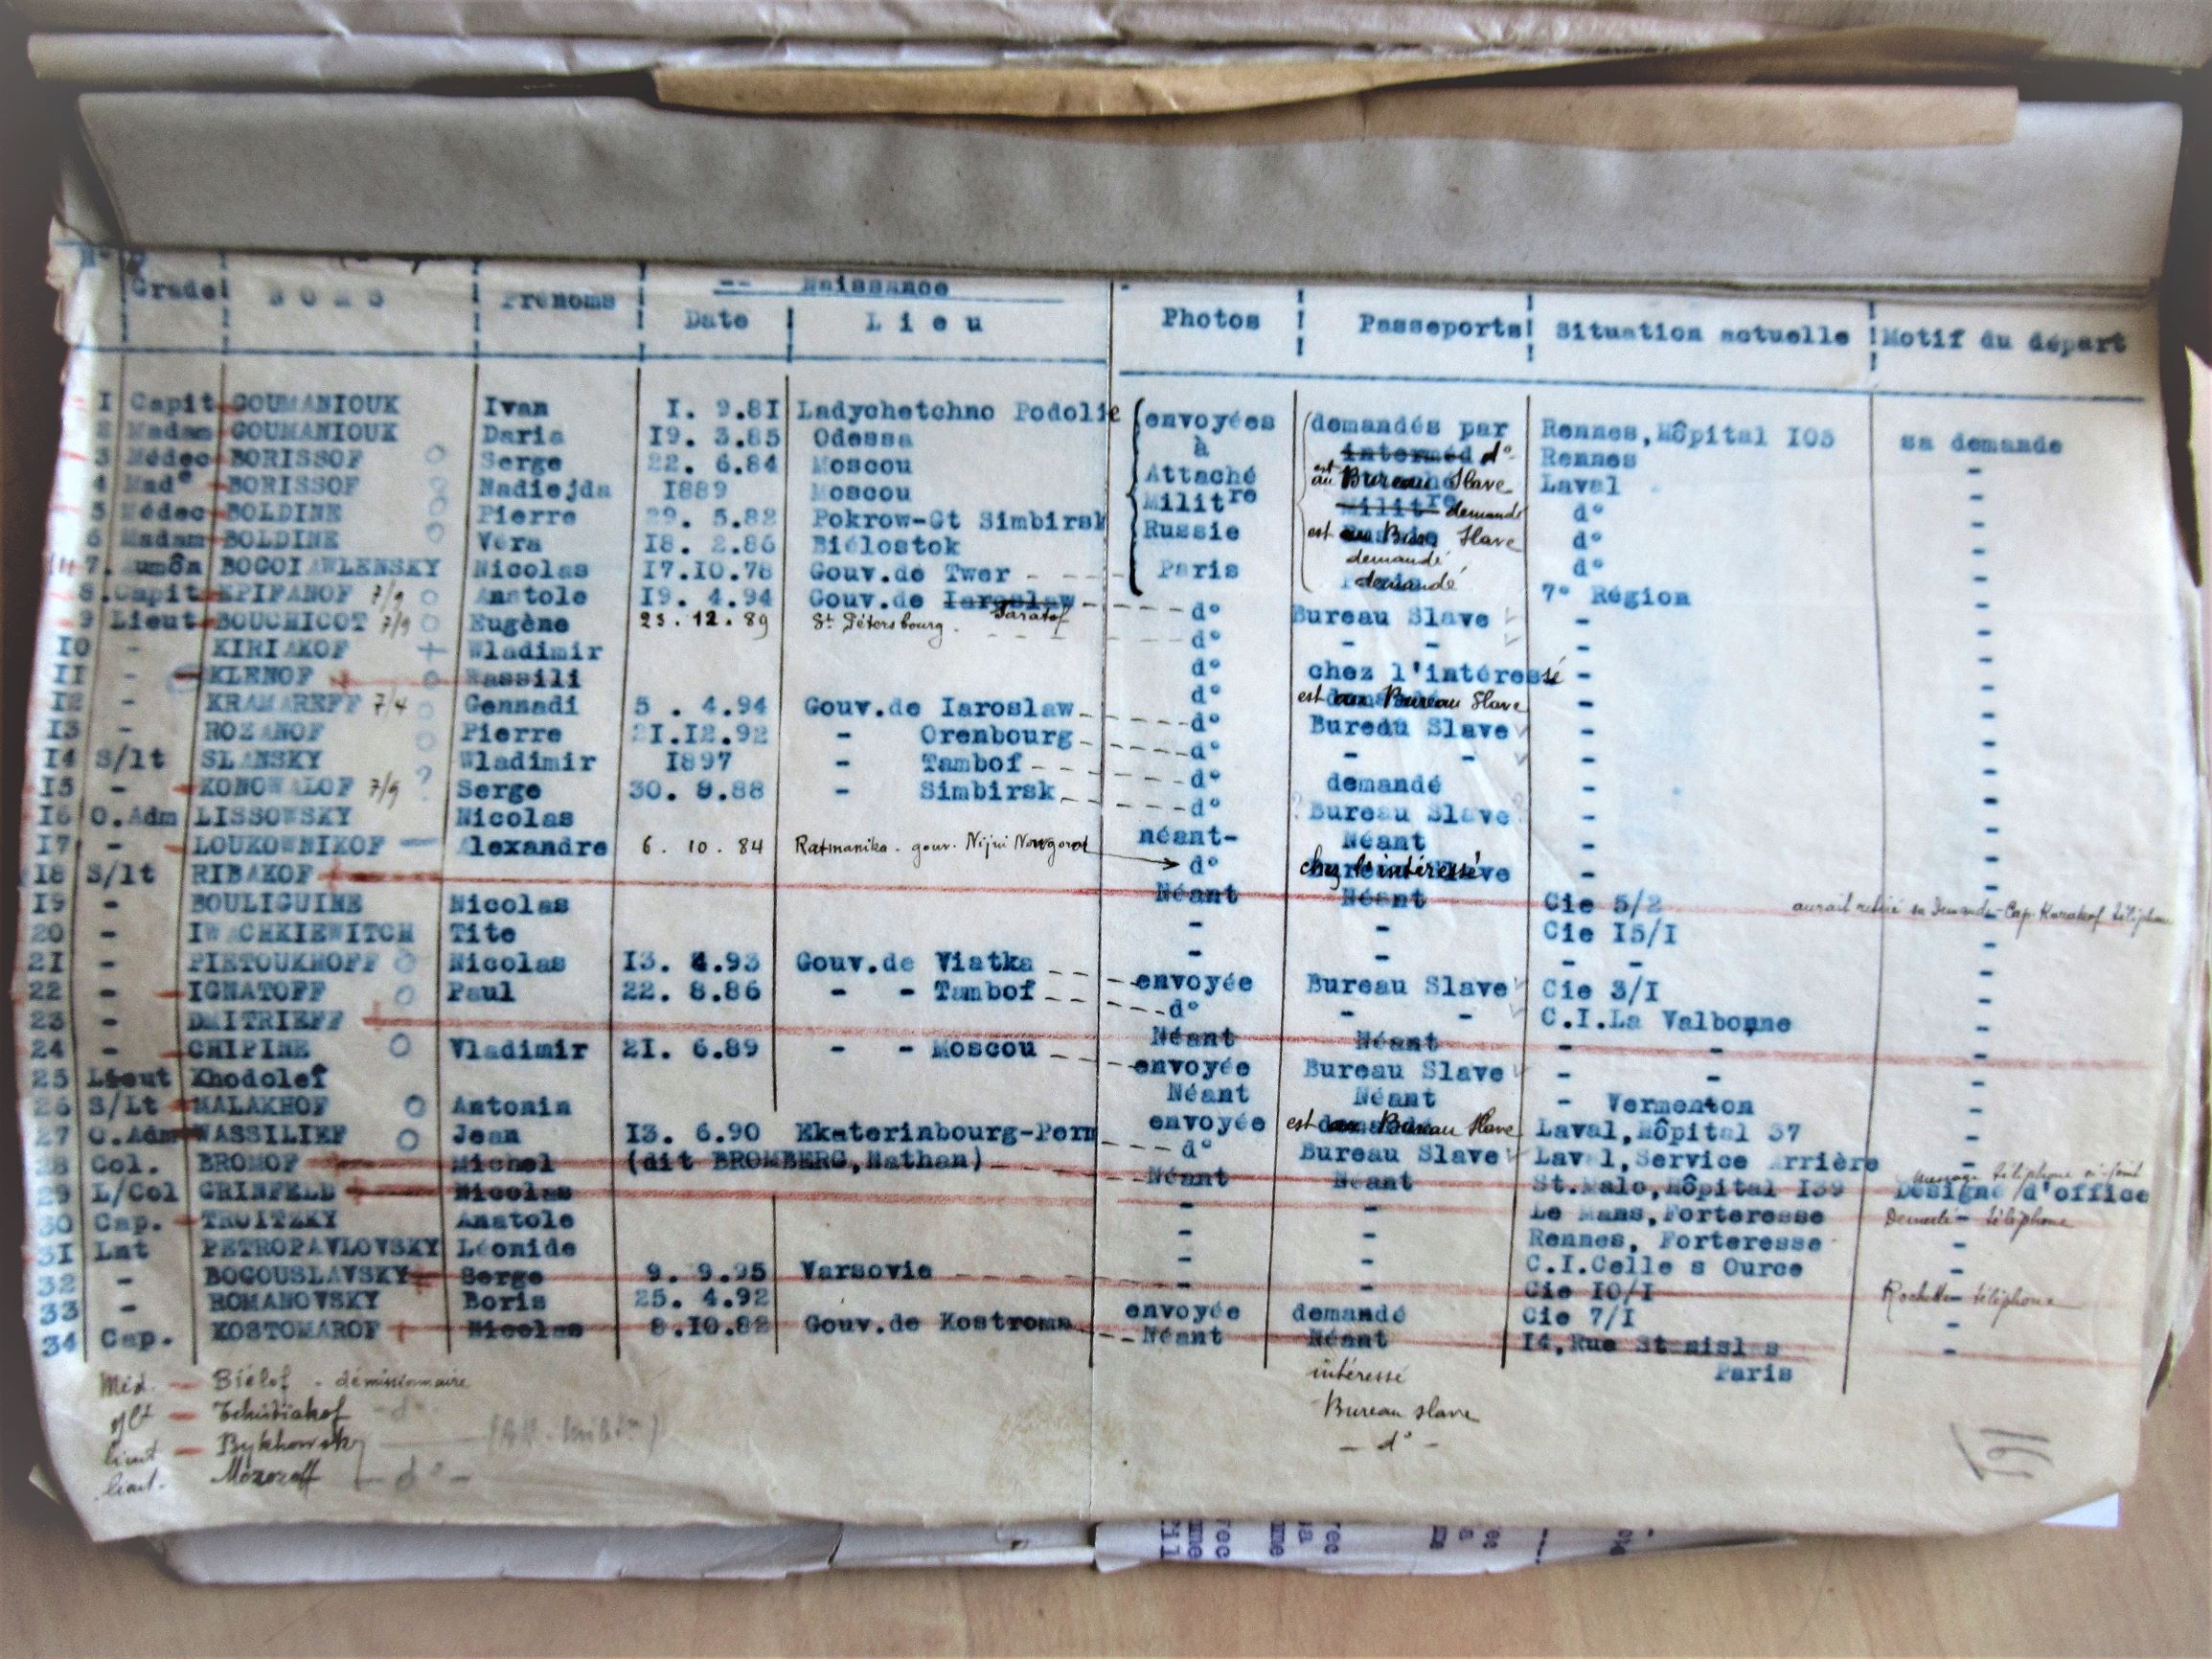 Grade NOMS Prénoms Naissance
Date Lieu Photos Passeports Situation actuelle Motif du départ
1 Capit GOUMANIOUK Ivan I. 9.8I Ladychetchno Podolie envoyées demandés par Rennes, Hôpital I05 sa demande
2 Madam GOUMANIOUK Daria I9. 3.85 Odessa à interméd d° Rennes -
3 Médec BORISSOF Serge 22. 6.84 Moscou Attaché est au Bureau Slave Laval -
4 Mad° BORISSOF Nadiejda I889 Moscou Milit re Milit re demandé d° -
5 Médec BOLDINE Pierre 29. 5.82 Pokrow-Gt Simbirsk Russie est au Bureau Slave d° -
6 Madam BOLDINE Véra I8. 2.86 Biélostok demandé d° -
7. Aumôn BOGOIAWLENSKY Nicolas I7.I0.78 Gouv.de Twer Paris demandé 7° Région -
8. Capit EPIFANOF 7/9 Anatole I9. 4.94 Gouv.de Iaroslaw Saratof d° Bureau Slave - -
9 Lieut BOUCHICOT 7/9 Eugène 23.12.89 St Pétersbourg d° - - - -
I0 - KIRIAKOF + Wladimir d° chez l'intéressé - -
II - KLENOF Wassili d° est au Bureau Slave - -
I2 - KRAMAREFF 7/4 Gennadi 5 . 4.94 Gouv.de Iaroslaw d° Bureau Slave - -
I3 - ROZANOF Pierre 2I.I2.92 - Orenbourg d° - - - -
I4 S/lt SLANSKY Wladimir I897 - Tambof d° demandé - -
I5 - KONOWALOF 7/9 ? Serge 30. 9.88 - Simbirsk d° Bureau Slave - -
I6 O.Adm LISSOWSKY Nicolas néant- Néant - -
I7 - LOUKOWNIKOF Alexandre 6. 10. 84 Ratmanika - gouv. Nijni Nowgorod d° chez l'intéressé - -
I8 S/lt RIBAKOF Néant Néant Cie 5/2 aurait retiré sa demande - Cap. Karakof téléphone
I9 - BOULIGUINE Nicolas - - Cie I5/I -
20 - IWACHKIEWITCH Tite - - - - -
2I - PIETOUKHOFF Nicolas I3. 4.93 Gouv.de Viatka envoyée Bureau Slave Cie 3/I -
22 - IGNATOFF Paul 22. 8.86 - - Tambof d° - - C.I.La Valbonne -
23 - DMITRIEFF Néant Néant - - -
24 - CHIPINE Vladimir 2I. 6.89 - - Moscou envoyée Bureau Slave - - -
25 Lieut Khodolef Néant Néant - Vermenton -
26 S/Lt MALAKHOF Antonin envoyée est au Bureau Slave Laval, Hôpital 37 -
27 O.Adm WASSILIEF Jean I3. 6.90 Ekaterinbourg-Perm d° Bureau Slave Laval, Service Arrière -
28 Col. BROMOF Michel (dit BROMBERG, Nathan) Néant Néant St.Malo, Hôpital I39 Désigné d'office message téléphoné ci-joint
29 L/Col GRINFELD Nicolas - - Le Mans, Forteresse téléphone
30 Cap. TROITZKY Anatole - - Rennes, Forteresse -
3I Lnt PETROPAVLOVSKY Léonide - - C.I.Celle s Ource -
32 - BOGOUSLAVSKY Serge 9. 9.95 Varsovie - - Cie I0/I téléphone
33 - ROMANOVSKY Boris 25. 4.92 envoyée demandé Cie 7/I -
34 Cap. KOSTOMAROF Nicolas 8.I0.82 Gouv.de Kostroma Néant Néant I4, Rue Stanislas -
Paris
Méd. - Biélof - démissionnaire intéressé
Tchubiakof - d° - Bureau slave
lieut - Bykhowsky - d° -
lieut. Mozozoff - d° -
191